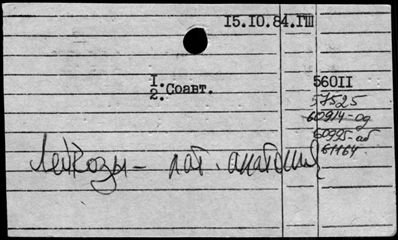 15.10.84.ГШ
I.
2. Соавт.
56011
57525
60914-од
60995-аб
61164
Лейкозы - пат. анатомия